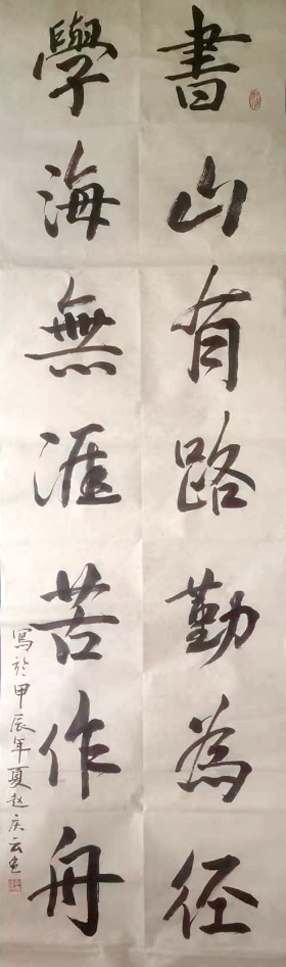 書山有路勤為徑
學海無涯苦作舟
寫於甲辰年夏赵庆云书